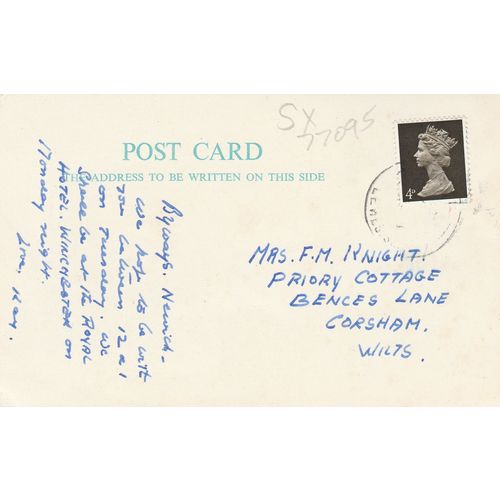 SX
77095
POST CARD
THE ADDRESS TO BE WRITTEN ON THIS SIDE
4D
Byways. Newick -
We hope to be with
you between 12 & 1
on Tuesday. We
shall be at the ROYAL
HOTEL. WINCHESTER on
Monday night.
Love, Kay.
MRS. F.M. KNIGHT.
PRIORY COTTAGE
BENCES LANE
CORSHAM.
WILTS.